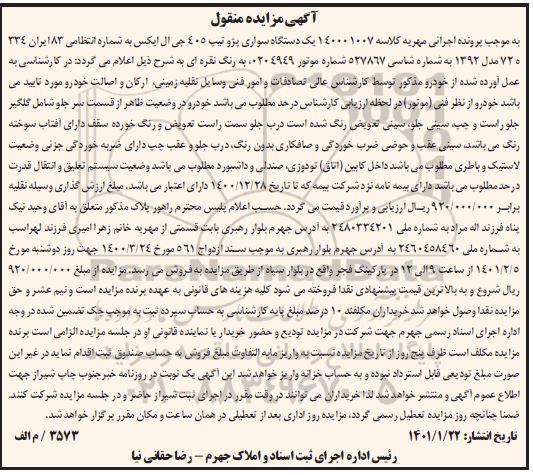 آگهی مزایده منقول
به موجب پرونده اجرائی مهریه کلاسه ۱۴۰۰۰۱۰۰۷ یک دستگاه سواری پژو تیپ ۴۰۵ جی ال ایکس به شماره انتظامی ۸۳ ایران ۳۳۴
ه ۷۲ مدل ۱۳۹۲ به شماره شاسی ۵۲۷۸۶۷ شماره موتور ۰۲۰۴۹۴۹، به رنگ نقره ای به شرح ذیل اعلام می گردد: در کارشناسی به
عمل آورده شده از خودرو مذکور توسط کارشناس عالی تصادفات و امور فنی وسایل نقلیه زمینی، ارکان و اصالت خودرو مورد تایید می
باشد خودرو از نظر فنی (موتور) در لحظه ارزیابی کارشناس در حد مطلوب می باشد خودرو در وضعیت ظاهر از قسمت سر جلو شامل گلگیر
جلو راست و چپ، سینی جلو، سینی تعویض رنگ شده است درب جلو سمت راست تعویض و رنگ خورده سقف دارای آفتاب سوخته
رنگ می باشد، سینی عقب و حوضی ضرب خوردگی و صافکاری بدون رنگ، درب جلو و عقب چپ دارای ضربه خوردگی جزئی وضعیت
لاستیک و باطری مطلوب می باشد داخل کابین (اتاق) تودوزی، صندلی و داشبورد مطلوب می باشد وضعیت سیستم تعلیق و انتقال قدرت
در حد مطلوب می باشد دارای بیمه نامه نزد شرکت بیمه که تا تاریخ ۱۴۰۰/۱۲/۲۸ دارای اعتبار می باشد. مبلغ ارزش گذاری وسیله نقلیه
برابر ۹۳۰/۰۰۰/۰۰۰ ریال ارزیابی و برآورد قیمت می گردد. حسب اعلام پلیس محترم راهور پلاک مذکور متعلق به آقای وحید نیک
پناه فرزند اله مراد به شماره ملی ۲۴۸۰۳۳۴۲۰۱ به آدرس جهرم بلوار رهبری بابت قسمتی از مهریه خانم زهرا امیری فرزند لهراسب
به شماره ملی ۲۴۶۰۴۵۸۴۶۰ به آدرس جهرم بلوار رهبری به موجب سند ازدواج ۵۶۱ مورخ ۱۴۰۰/۳/۲۴ جهت روز دوشنبه مورخ
۱۴۰۱/۲/۵ از ساعت ۹ الی ۱۲ در پارکینگ فجر واقع در بلوار سپاه از طریق مزایده به فروش می رسد. مزایده از مبلغ ۹۲۰/۰۰۰/۰۰۰
ریال شروع و به بالاترین قیمت پیشنهادی نقدا فروخته می شود کلیه هزینه های قانونی به عهده برنده مزایده است و نیم عشر و حق
مزایده نقدا وصول خواهد شد خریداران مکلفند ۱۰ درصد مبلغ پایه کارشناسی به حساب سپرده ثبت به موجب چک تضمین شده در وجه
اداره اجرای اسناد رسمی جهرم جهت شرکت در مزایده تودیع و حضور خریدار یا نماینده قانونی او در جلسه مزایده الزامی است برنده
مزایده مکلف است ظرف پنج روز از تاریخ مزایده نسبت به واریز مابه التفاوت مبلغ فروش به حساب صندوق ثبت اقدام نماید در غیر این
صورت مبلغ تودیعی قابل استرداد نبوده و به حساب خزانه واریز خواهد شد این آگهی یک نوبت در روزنامه خبر جنوب چاپ شیراز جهت
اطلاع عموم آگهی و منتشر خواهد شد لذا خریداران می توانند در وقت مقرر در اجرای ثبت شیراز حاضر و در جلسه مزایده شرکت کنند.
ضمنا چنانچه روز مزایده تعطیل رسمی گردد، مزایده روز اداری بعد از تعطیلی در همان ساعت و مکان مقرر برگزار خواهد شد.
تاریخ انتشار: ۱۴۰۱/۱/۲۲
۳۵۷۳ / م الف
رئیس اداره اجرای ثبت اسناد و املاک جهرم - رضا حقانی نیا